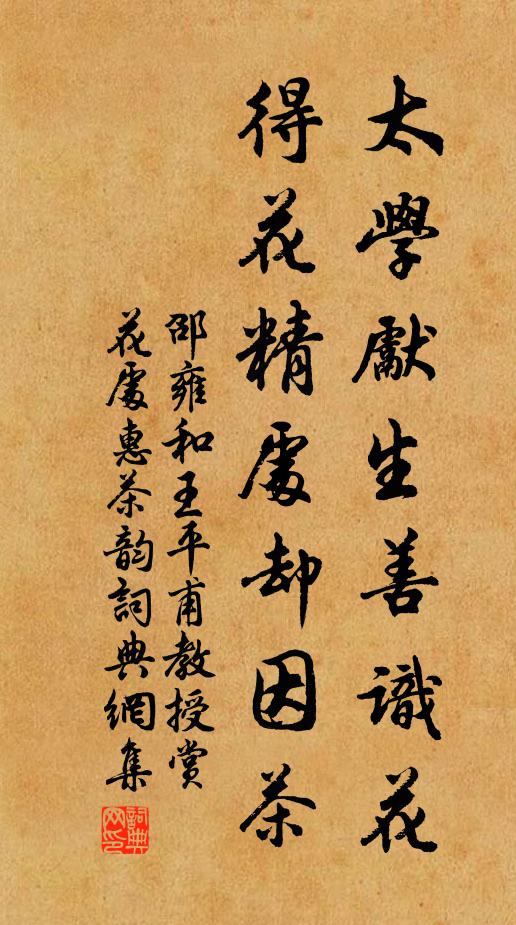 太學獻生善識花
得花精處却因茶
邵雍和王平甫教授賞
花處惠茶韵詞典網集
詞典
网印